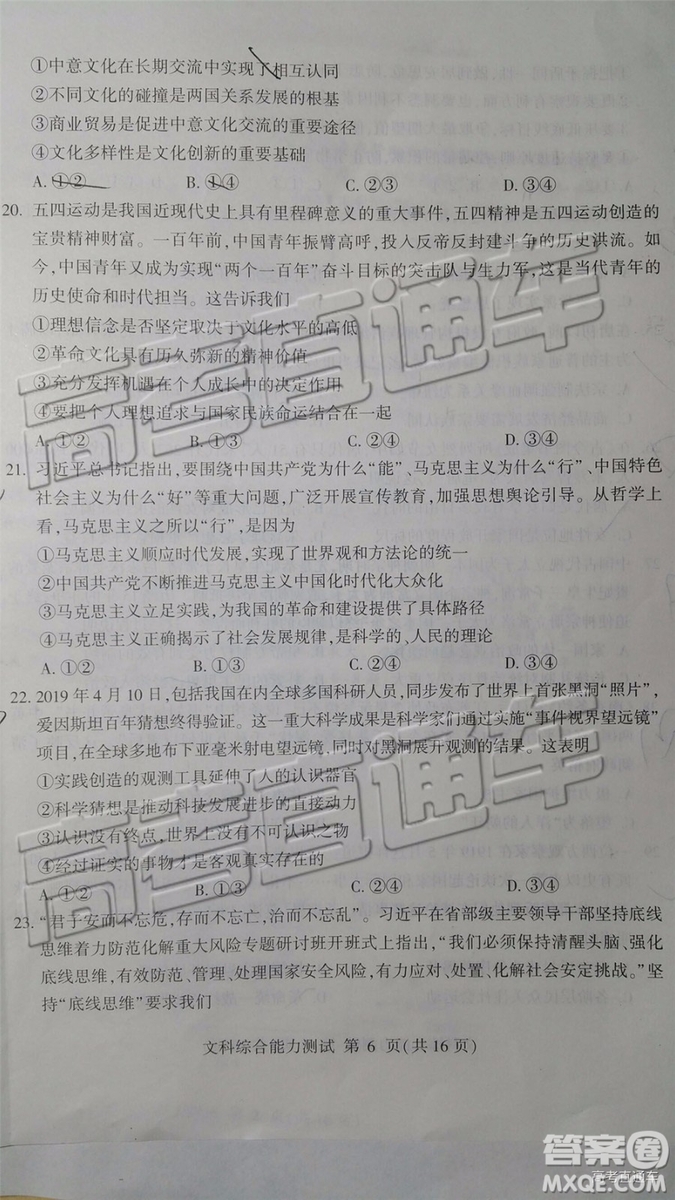 ①中意文化在长期交流中实现了相互认同
②不同文化的碰撞是两国关系发展的根基
③商业贸易是促进中意文化交流的重要途径
④文化多样性是文化创新的重要基础
A. ①② B. ①④ C. ②③ D. ③④
20. 五四运动是我国近现代史上具有里程碑意义的重大事件,五四精神是五四运动创造的
宝贵精神财富。一百年前,中国青年振臂高呼,投入反帝反封建斗争的历史洪流。如
今,中国青年又成为实现“两个一百年”奋斗目标的突击队与生力军,这是当代青年的
历史使命和时代担当。这告诉我们
①理想信念是否坚定取决于文化水平的高低
②革命文化具有历久弥新的精神价值
③充分发挥机遇在个人成长中的决定作用
④要把个人理想追求与国家民族命运结合在一起
A. ①② B. ①③ C. ②④ D. ③④
21. 习近平总书记指出,要围绕中国共产党为什么“能”、马克思主义为什么“行”、中国特色
社会主义为什么“好”等重大问题,广泛开展宣传教育,加强思想舆论引导。从哲学上
看,马克思主义之所以“行”,是因为
①马克思主义顺应时代发展,实现了世界观和方法论的统一
②中国共产党不断推进马克思主义中国化时代化大众化
③马克思主义立足实践,为我国的革命和建设提供了具体路径
④马克思主义正确揭示了社会发展规律,是科学的、人民的理论
A. ①② B. ①③ C. ②④ D. ③④
22. 2019 年 4 月 10 日,包括我国在内全球多国科研人员,同步发布了世界上首张黑洞“照片”,
爱因斯坦百年猜想终得验证。这一重大科学成果是科学家们通过实施“事件视界望远镜”
项目,在全球多地布下亚毫米射电望远镜、同时对黑洞展开观测的结果。这表明
①实践创造的观测工具延伸了人的认识器官
②科学猜想是推动科技发展进步的直接动力
③认识没有终点,世界上没有不可认识之物
④经过证实的事物才是客观实存在的
A. ①② B. ①③ C. ②④ D. ③④
23. “君子安而不忘危,存而不忘亡,治而不忘乱”。习近平在省部级主要领导干部坚持底线
思维着力防范化解重大风险专题研讨班开班式上指出,“我们必须保持清醒头脑、强化
底线思维,有效防范、管理、处理国家安全风险,有力应对、处置、化解社会安定挑战。”坚
持“底线思维”要求我们
文科综合能力测试 第 6 页(共 16 页)
高考直通车
高考直通车
答案圈
高考直通车
MXQE.COM